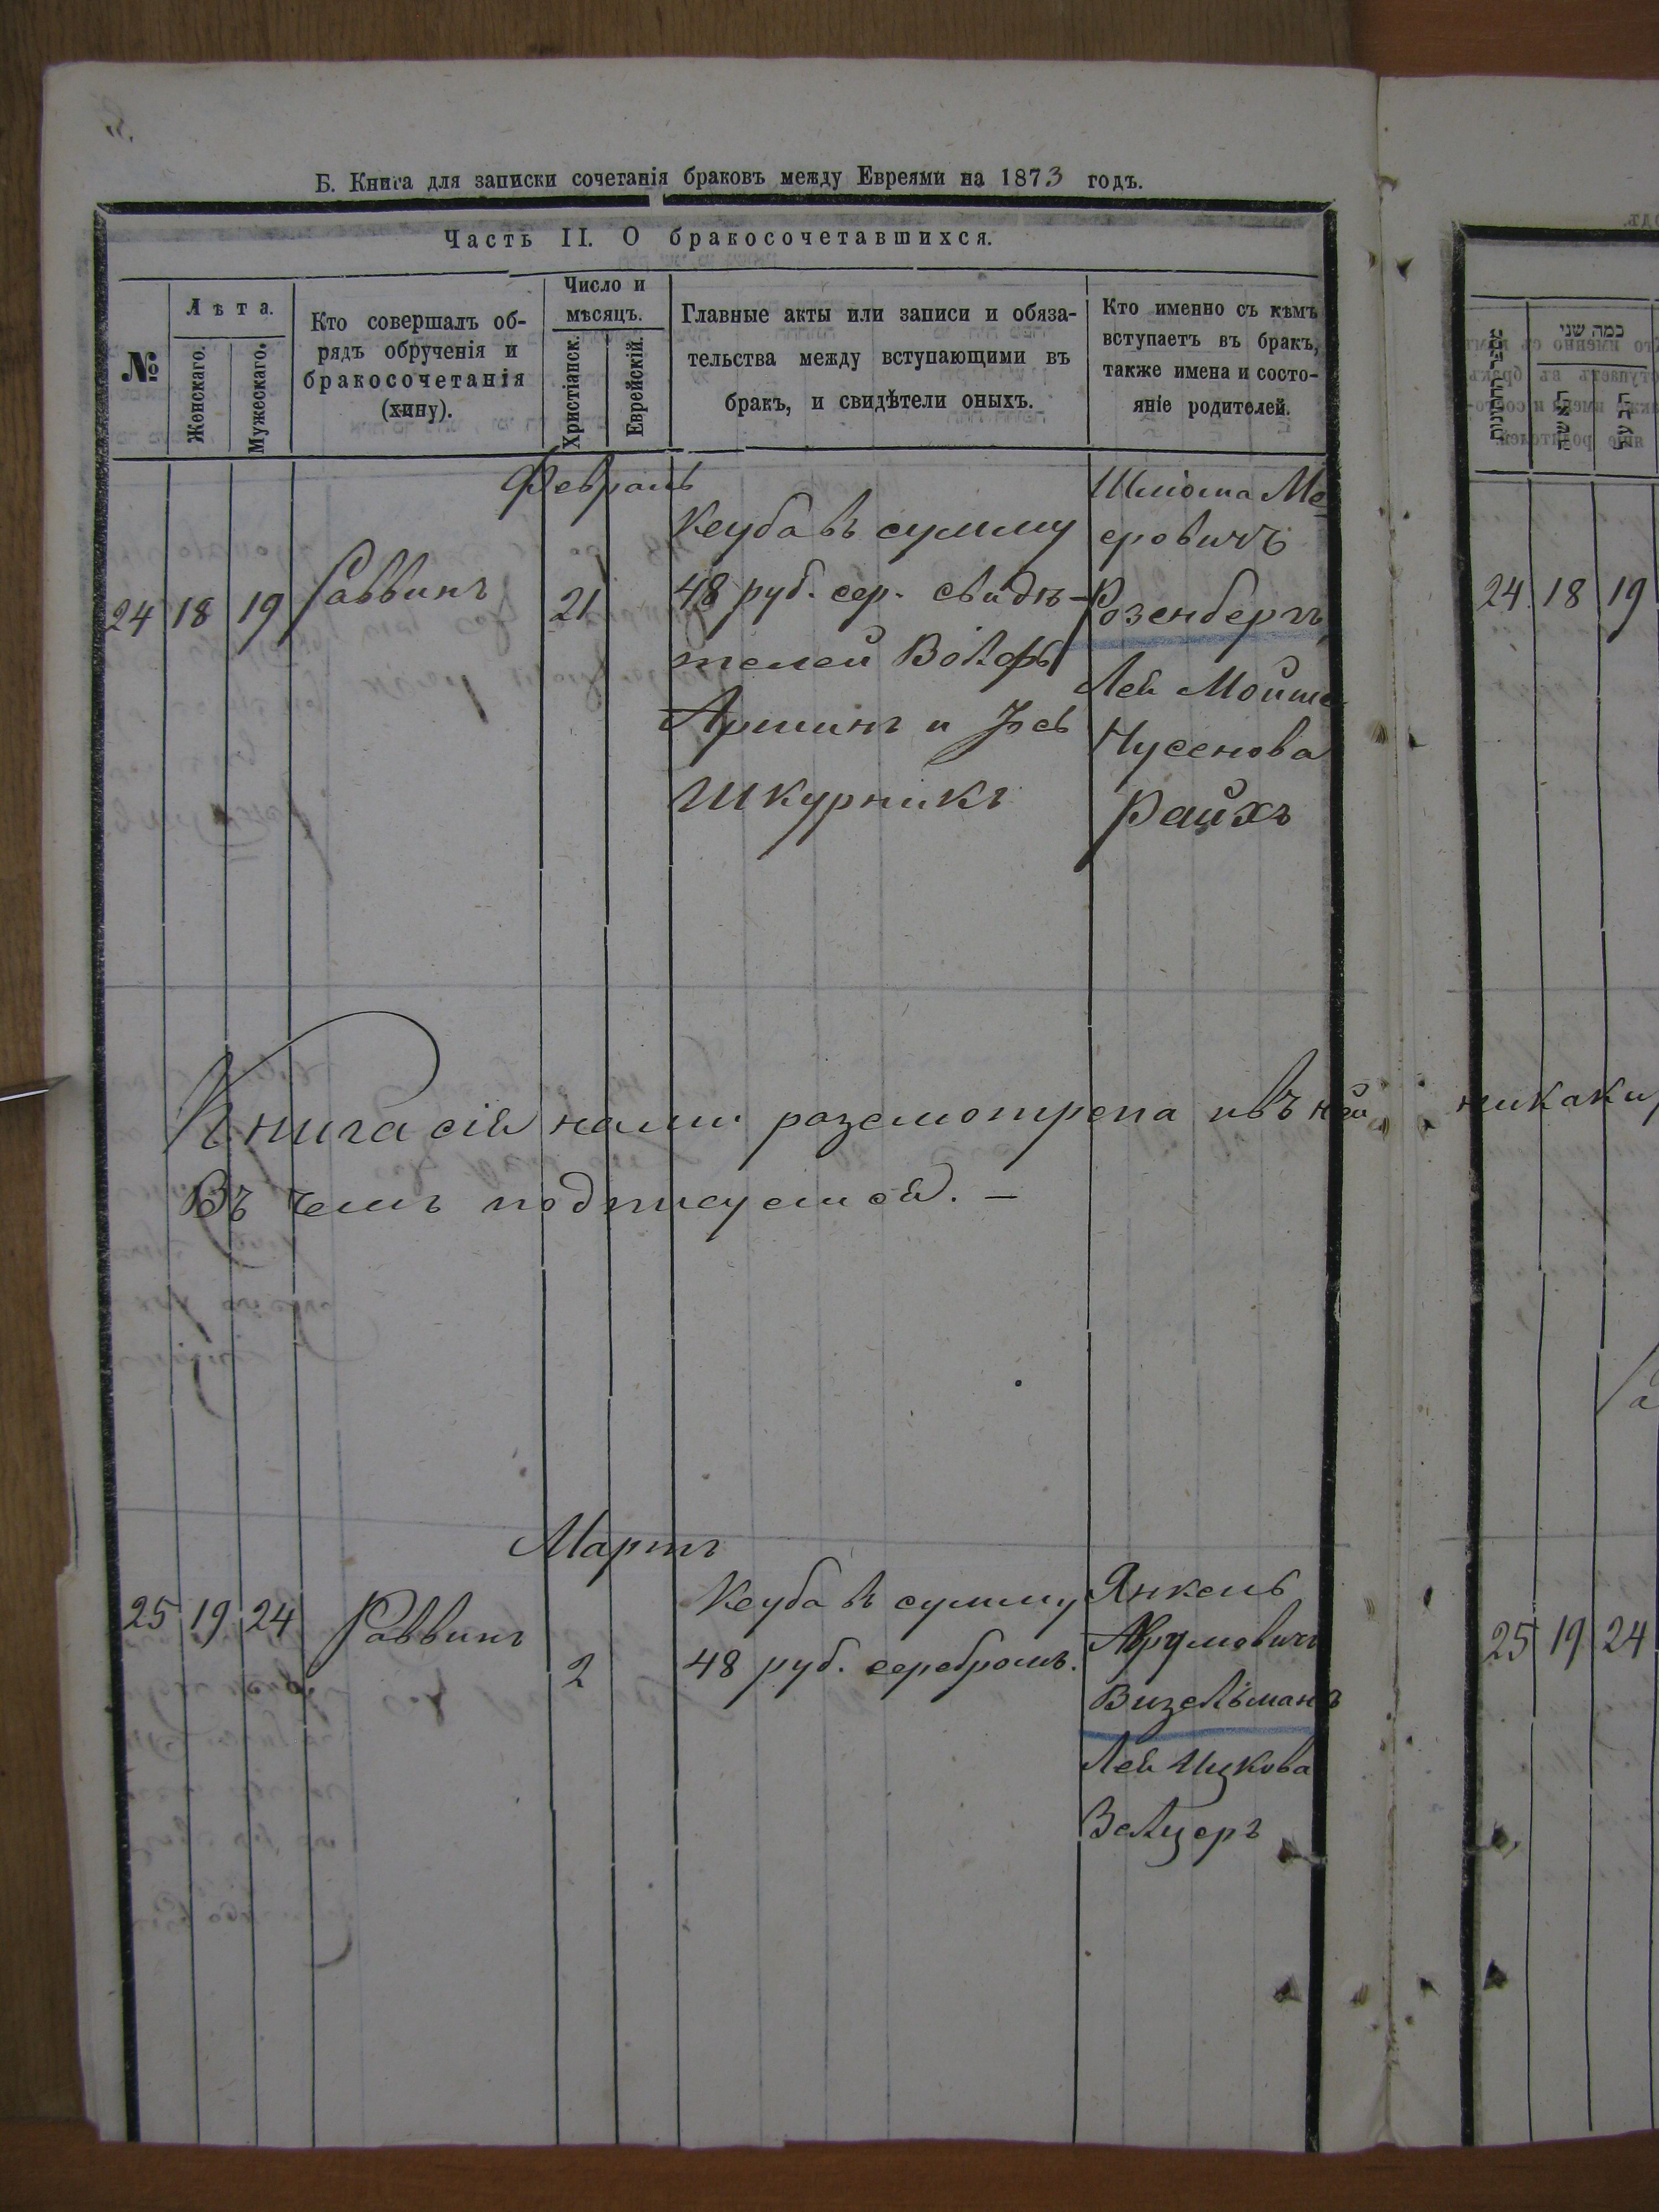 Б. Книга для записки сочетанія браковъ между Евреями на 1873 годъ.
Часть II. О бракосочетавшихся.
№
Лѣта.
Женскаго.
Мужескаго.
Кто совершалъ об-
рядъ обрученія и
бракосочетанія
(хину).
Число и
мѣсяцъ.
Христіанск.
Еврейскій.
Главные акты или записи и обяза-
тельства между вступающими въ
бракъ, и свидѣтели оныхъ.
Кто именно съ кѣмъ
вступаетъ въ бракъ,
также имена и состо-
яніе родителей.
Февраль
24 18 19 Раввинъ 21
Кеуба въ сумму
48 руб. сер. свидѣ-
телей Волфъ
Аршинъ и
Шкурникъ
Шліома Ме
еровичъ
Розенбергъ,
Лея Мойше
Нусенова
Райхъ
Книга сія нами разсмотрена и въ ней никаки
Въ чемъ подписуемся. —
Мартъ
25 19 24 Раввинъ 2
Кеуба въ сумму
48 руб. серебромъ.
Янкель
Абрумовичъ
Визельманъ
Лея Ицкова
Зельцеръ
מספר החתונות
כמה שני
האשה
הבעל
24 18 19
25 19 24